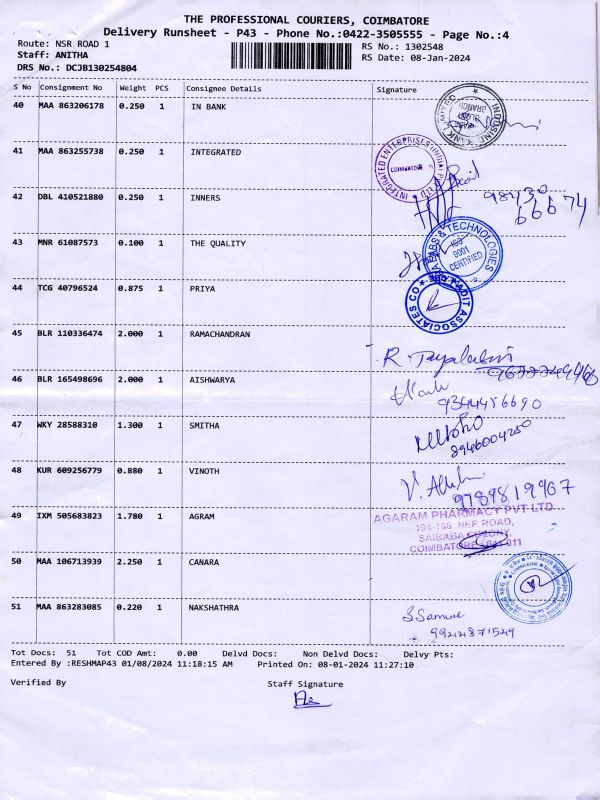 THE PROFESSIONAL COURIERS, COIMBATORE
Delivery Runsheet - P43 - Phone No.:0422-3505555 - Page No.:4
Route: NSR ROAD 1
RS No.: 1302548
Staff: ANITHA
RS Date: 08-Jan-2024
DRS No.: DCJB130254804
S No Consignment No Weight PCS Consignee Details Signature
40 MAA 863206178 0.250 1 IN BANK
41 MAA 863255738 0.250 1 INTEGRATED
INTEGRATED ENTERPRISES
COIMBATORE
42 DBL 410521880 0.250 1 INNERS
98430
66674
43 MNR 61087573 0.100 1 THE QUALITY
LABS & TECHNOLOGIES
ISO
9001
CERTIFIED
44 TCG 40796524 0.875 1 PRIYA
AUDIT ASSOCIATES
45 BLR 110336474 2.000 1 RAMACHANDRAN
46 BLR 165498696 2.000 1 AISHWARYA
9344456690
47 WKY 28588310 1.300 1 SMITHA
8946004250
48 KUR 609256779 0.880 1 VINOTH
9789819967
49 IXM 505683823 1.780 1 AGRAM
AGARAM PHARMACY PVT LTD
194-196, NSR ROAD,
SAIBABA COLONY,
COIMBATORE - 641 011
50 MAA 106713939 2.250 1 CANARA
CANARA BANK
51 MAA 863283085 0.220 1 NAKSHATHRA
9944871549
Tot Docs: 51 Tot COD Amt: 0.00 Delvd Docs: Non Delvd Docs: Delvy Pts:
Entered By :RESHMAP43 01/08/2024 11:18:15 AM Printed On: 08-01-2024 11:27:10
Verified By Staff Signature